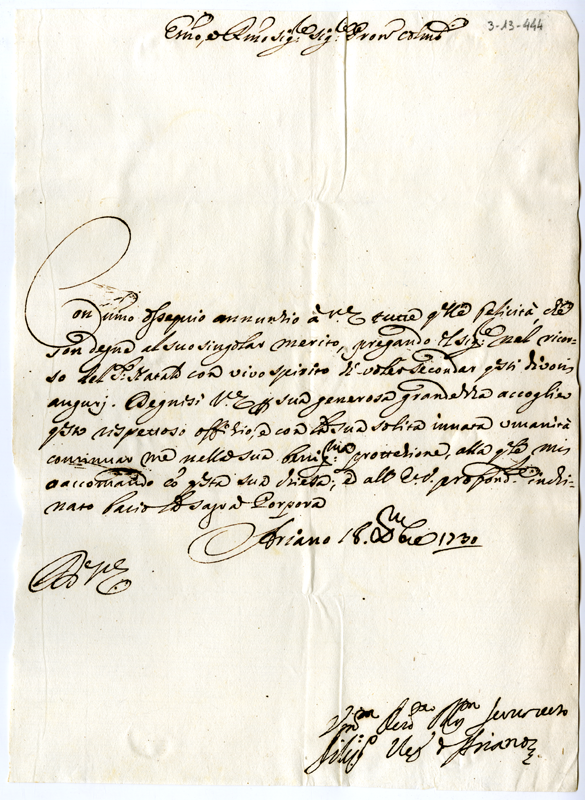 3-13-444
Em̃o, e Rm̃o Sig.r Sig.r Pron̄ Colmo
Con umo ossequio annunzio à V.E. tutte q̃lle felicità che
son degne al suo singolar merito, pregando il Sig.re nel ricor-
so del S. Natale con vivo spirito di voler secondar q̃sti divoti
augurj. Degnisi V.E. p̄ sua generosa grandezza accoglier
q̃sto rispettoso offizio, e con la sua solita innata umanità
continuar me nella sua benig.ma protezione, alla q̃le mi
raccomando cō q̃sta sua Chiesa; ed all' E.V. profond.te inchi-
nato bacio la sagra Porpora
Ariano 18. Xbre 1730
D. V.E.
Um̃o Servitore
Filip.o Ves.o d'Ariano